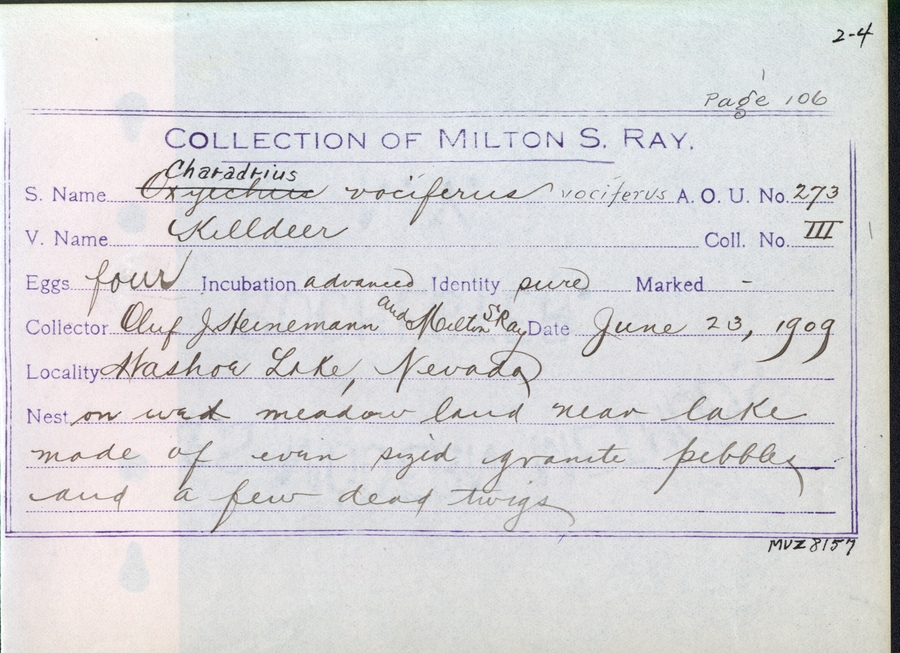 2-4
Page 106
COLLECTION OF MILTON S. RAY.
Charadrius
S. Name Oxyechus vociferus vociferus A. O. U. No. 273
V. Name Killdeer Coll. No. III
Eggs four Incubation advanced Identity sure Marked -
Collector Oluf J. Heinemann and Milton S Ray Date June 23, 1909
Locality Washoe Lake, Nevada
Nest on wet meadow land near lake
made of even sized granite pebbles
and a few dead twigs
MVZ 8157